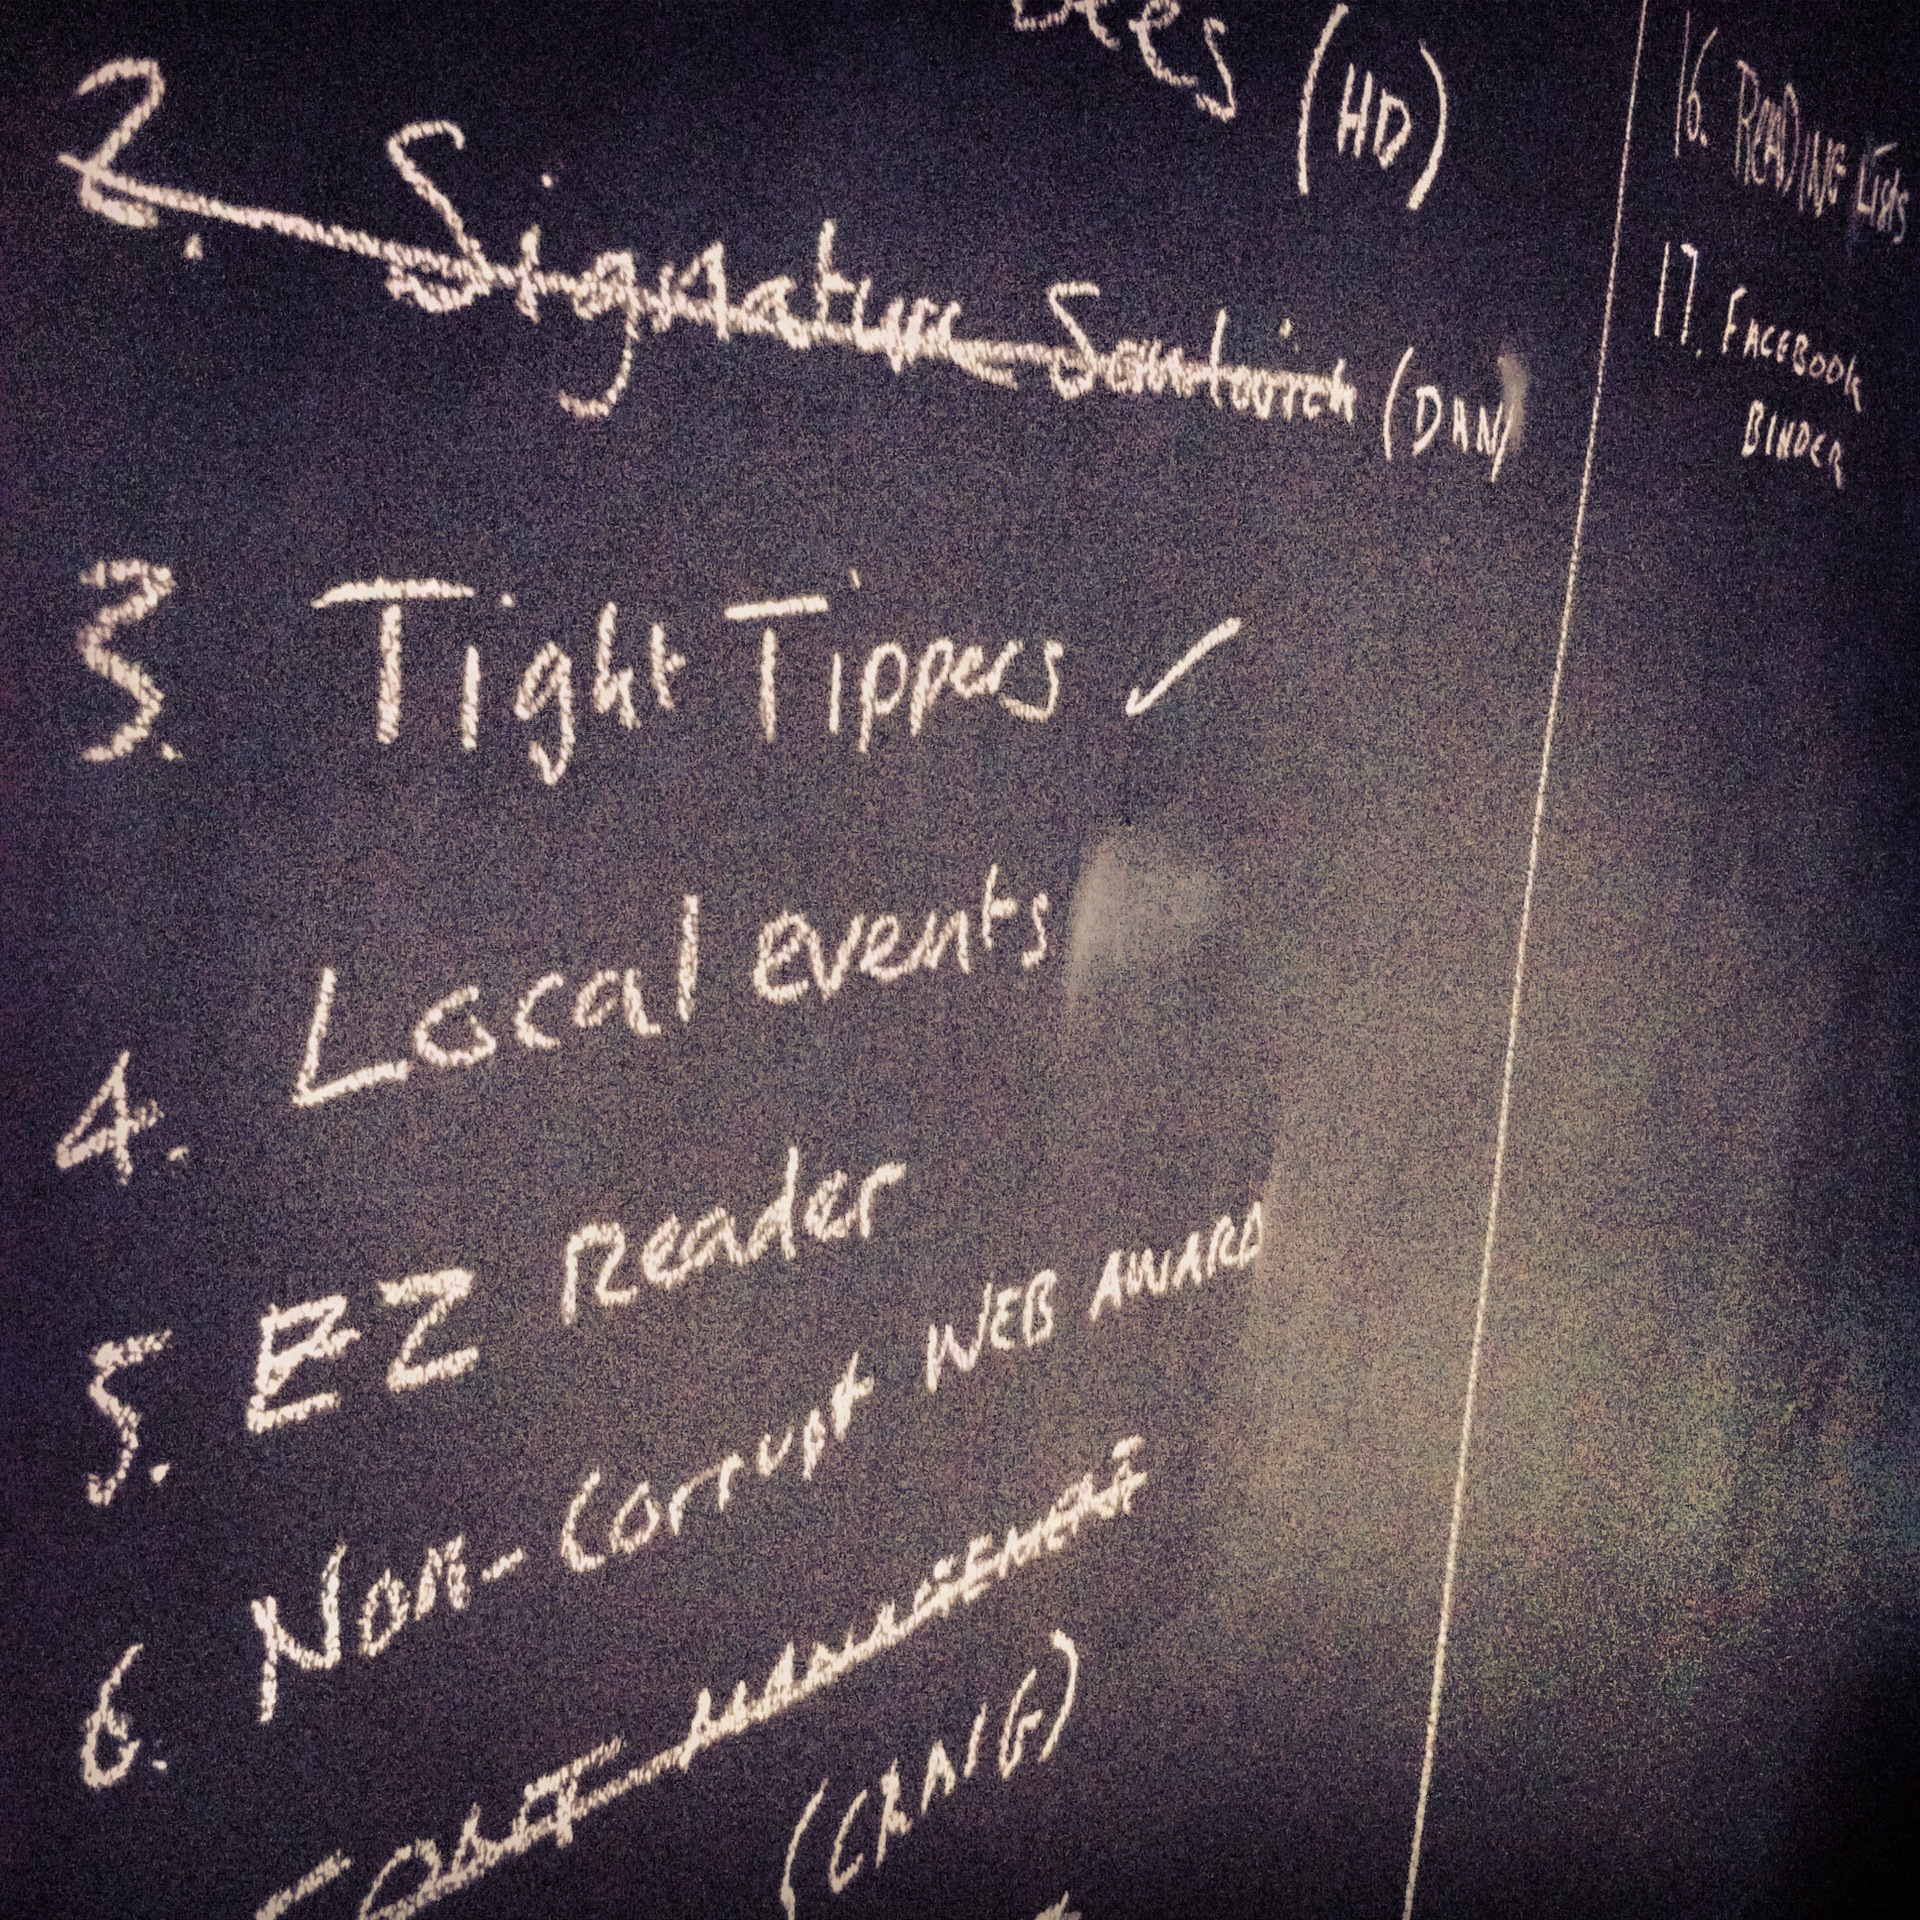 (HD)
2. Signature Sandwich (DAN)
3. Tight Tippers ✓
4. Local events
5. EZ reader
6. Non-Corrupt WEB AWARD
(CRAIG)
16. READING Lists
17. FACEBOOK
BINDER